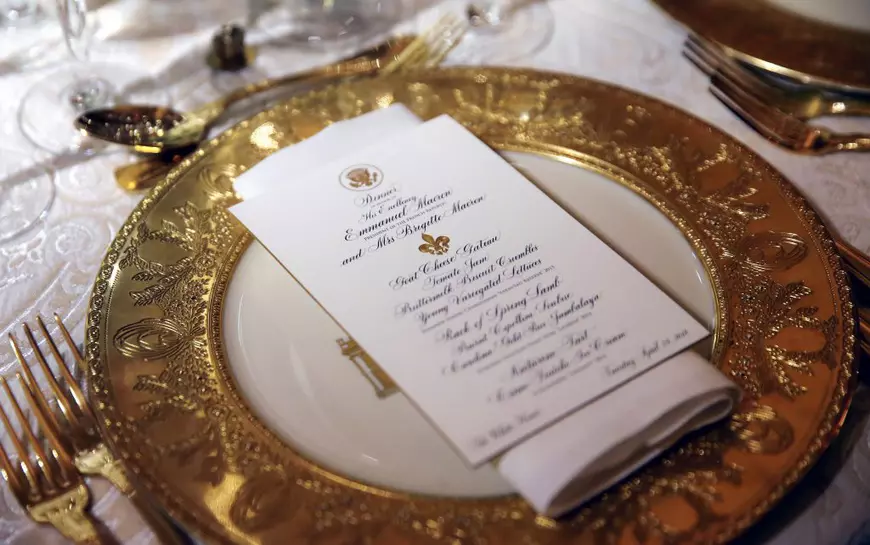 Dinner
His Excellency
Emmanuel Macron
PRESIDENT OF THE FRENCH REPUBLIC
and Mrs Brigitte Macron
Goat Cheese Gateau
Tomato Jam
Buttermilk Biscuit Crumbles
Young Variegated Lettuces
Rack of Spring Lamb
Burnt Cipollini Soubise
Carolina Gold Rice Jambalaya
Nectarine Tart
Crème Fraîche Ice Cream
The White House
Tuesday April 24, 2018